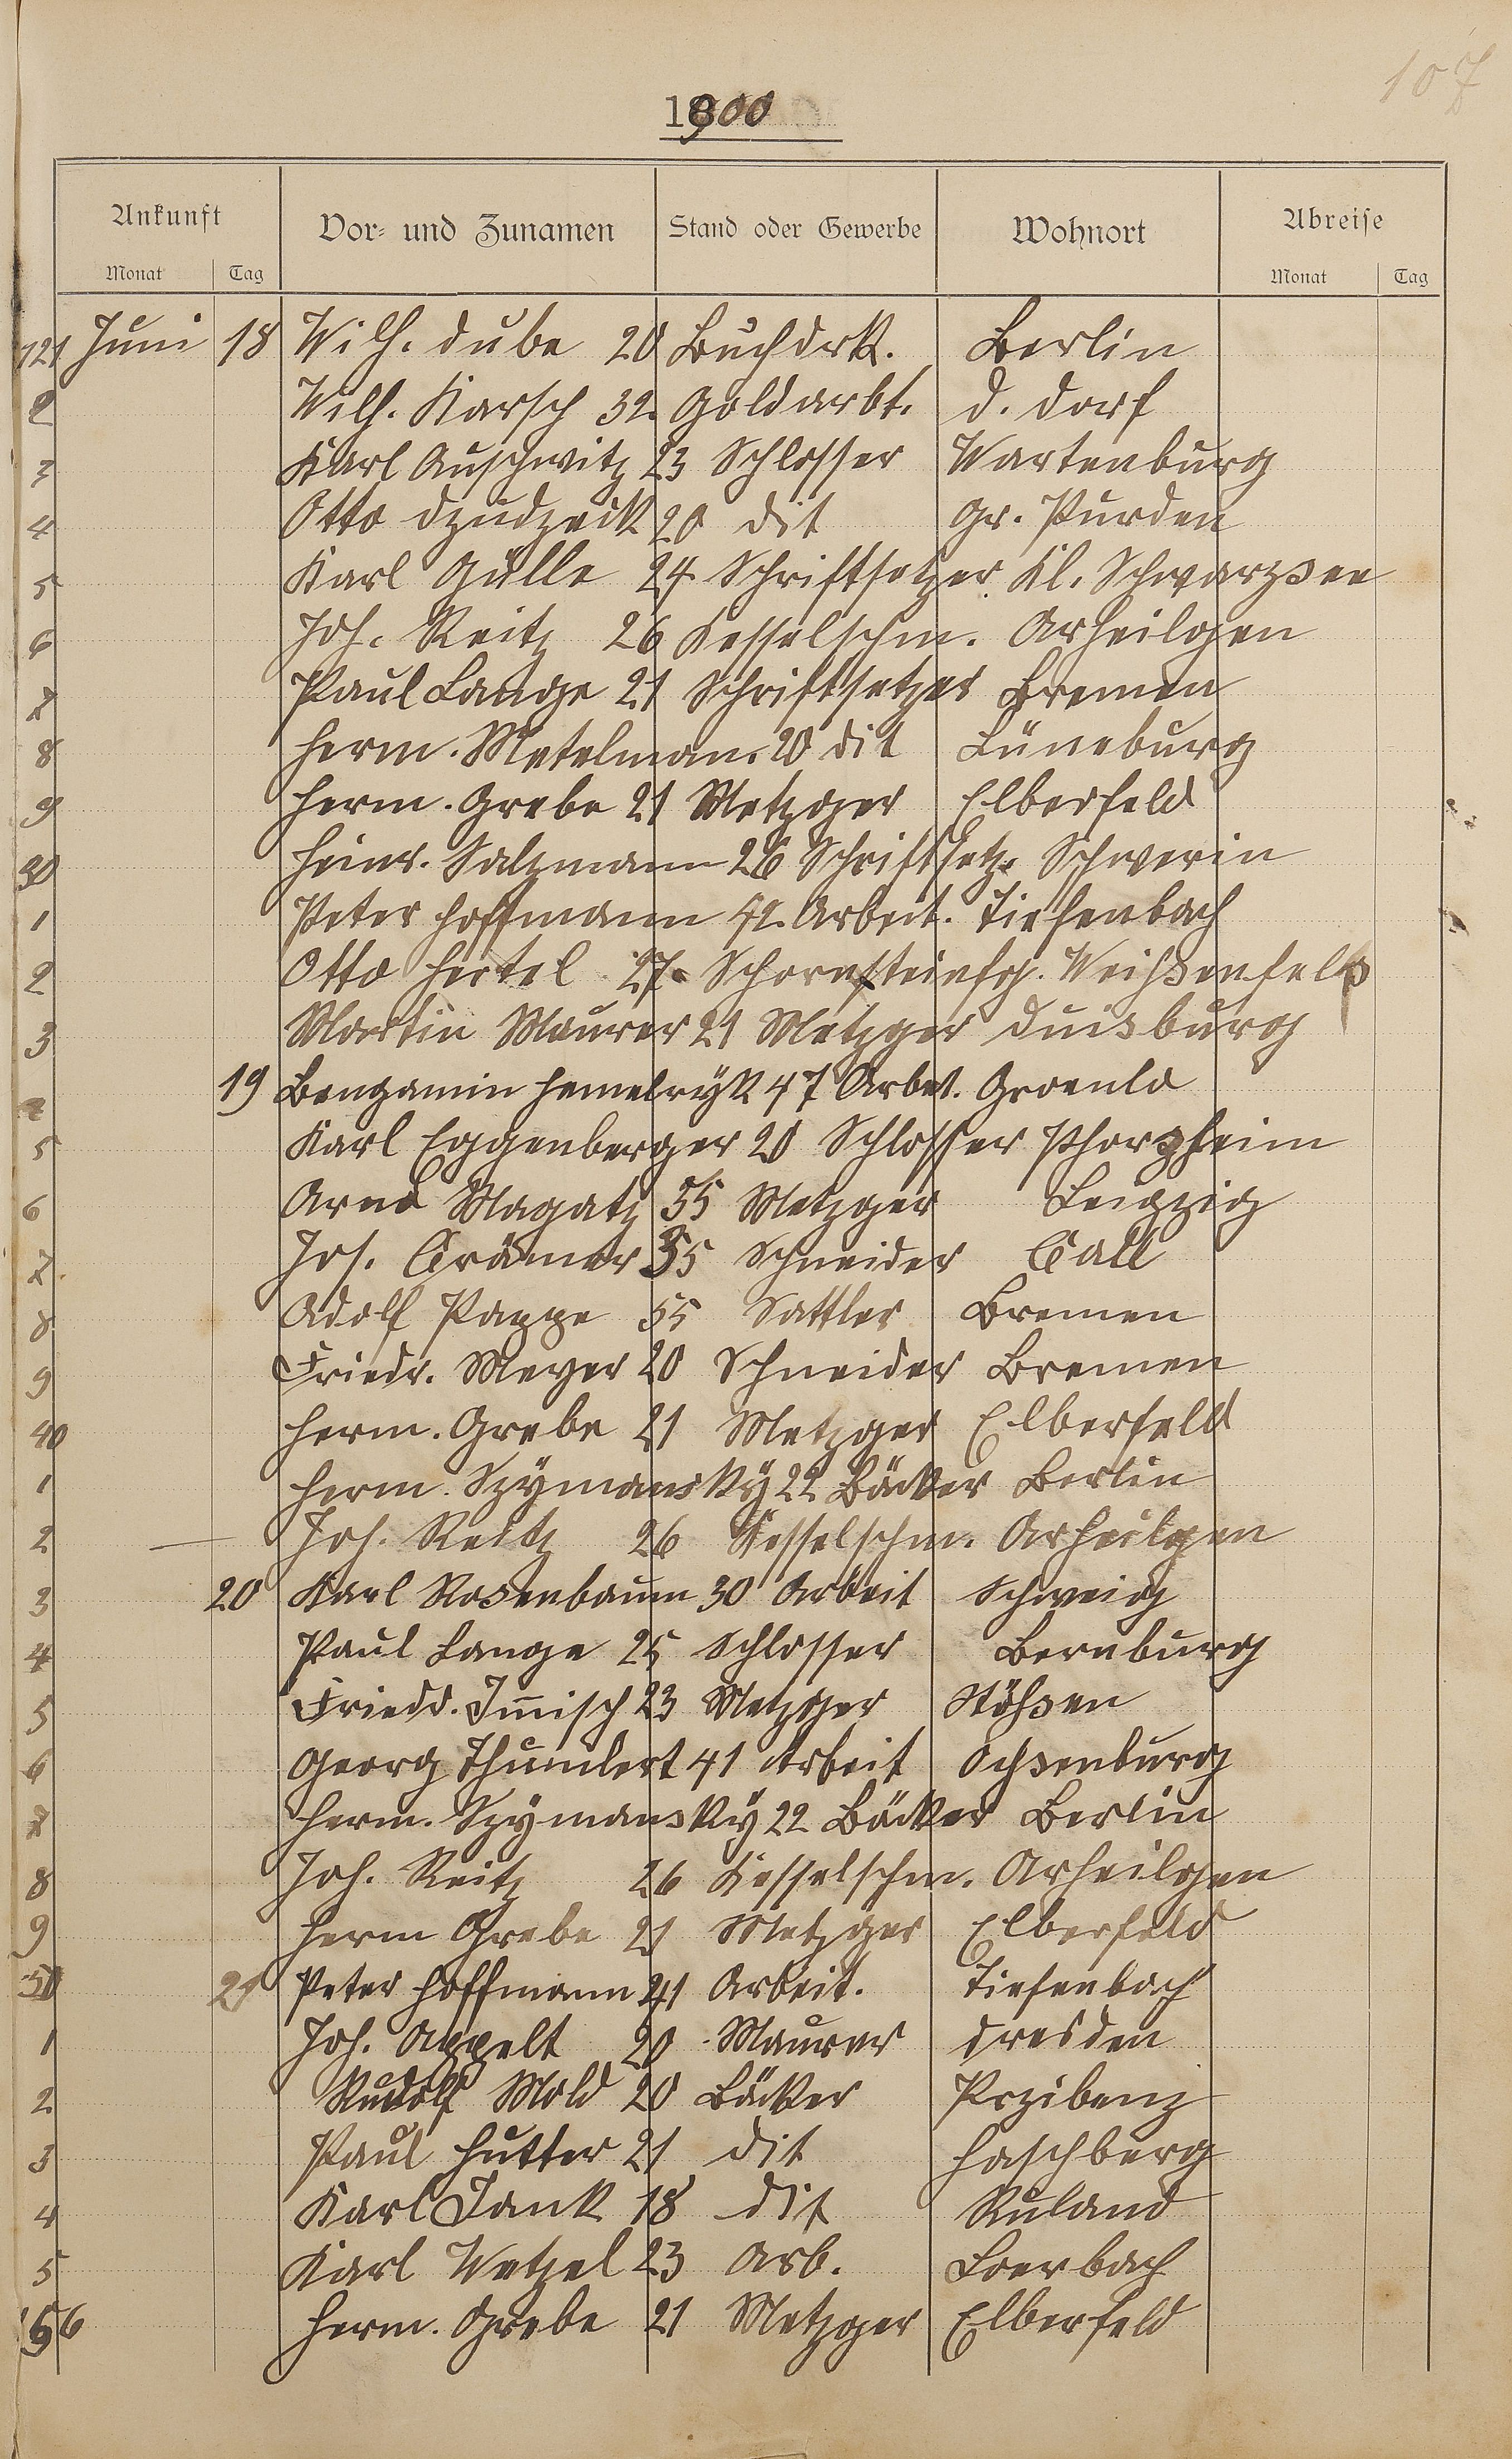 107
1900
Ankunft Vor- und Zunamen Stand oder Gewerbe Wohnort Abreise
Monat Tag Monat Tag
121 Juni 18 Wilh. Dube 20 Buchdrk. Berlin
2 Wilh. Karsch 32. Goldarbt. D. dorf
3 Karl Auschwitz 23 Schlosser Wartenburg
4 Otto Dzudzeck 20 dit Gr. Purden
5 Karl Gülle 24 Schriftsetzer Kl. Schwarzsee
6 Joh. Reitz 26 Kesselschm. Arheilgen
7 Paul Lange 21 Schriftsetzer Bremen
8 Herm. Metelman. 20 dit Lüneburg
9 Herm. Grebe 21 Metzger Elberfeld
30 Heinr. Salzmann 26 Schriftsetz. Schwerin
1 Peter Hoffmann 42. Arbeit. Tiefenbach
2 Otto Hertel 27. Schornsteinfg. Weißenfels
3 Martin Maurer 21 Metzger Duisburg
19 Bengamin Hemelryk 47 Arbet. Groenlo
5 Karl Eggenberger 20 Schlosser Phorzheim
6 Arno Magatz 35 Metzger Leipzig
7 Jos. Crämer 35 Schneider Call
8 Adolf Pappe 55 Sattler Bremen
9 Friedr. Meyer 20 Schneider Bremen
40 Herm. Grebe 21 Metzger Elberfeld
1 Herm. Szymansky 22 Bäcker Berlin
2 Joh. Reitz 26 Kesselschm. Arheilgen
3 20 Karl Rosenbaum 30 Arbeit Schweig
4 Paul Lange 25 Schlosser Bernburg
5 Friedr. Im̄isch 23 Metzger Stößen
6 Georg Thumlert 41 Arbeit Ochsenburg
7 Herm. Szymansky 22 Bäcker Berlin
8 Joh. Reitz 26 Kesselschm. Arheilgen
9 Herm Grebe 21 Metzger Elberfeld
50 21 Peter Hoffmann 41 Arbeit. Tiefenbach
1 Joh. Appelt 20 Maurer Dresden
2 Rudolf Mold 20 Bäcker Przibenz
3 Paul Hutter 21 dit Haschberg
4 Karl Jank 18 dit Ruland
5 Karl Wetzel 23 Arb. Loerbach
56 Herm. Grebe 21 Metzger Elberfeld